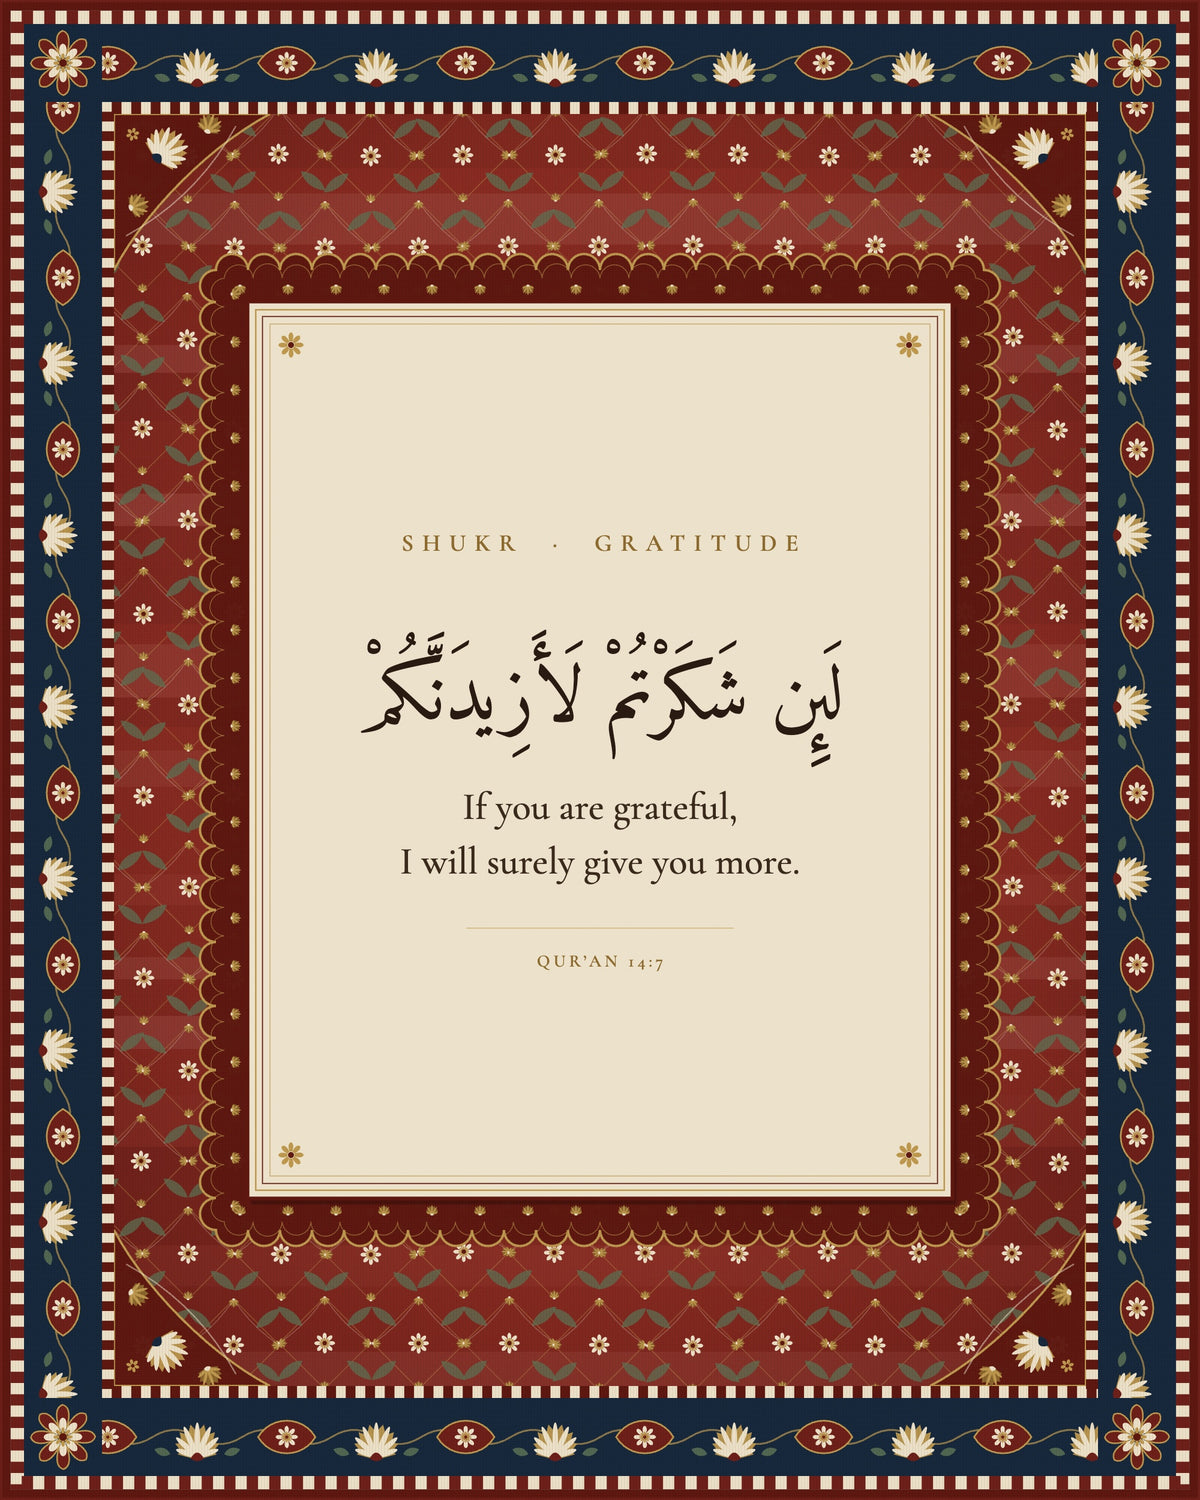 SHUKR · GRATITUDE
لَئِن شَكَرْتُمْ لَأَزِيدَنَّكُمْ
If you are grateful,
I will surely give you more.
QUR’AN 14:7